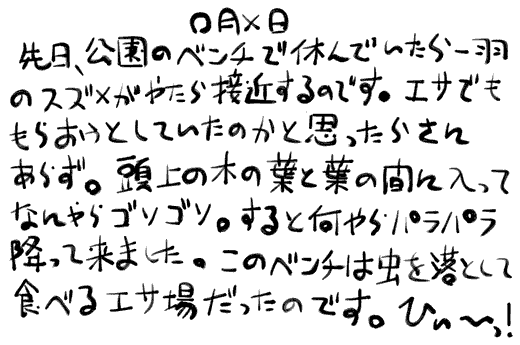 〇月×日
先日、公園のベンチで休んでいたら一羽
のスズメがやたら接近するのです。エサでも
もらおうとしていたのかと思ったらさん
あらず。頭上の木の葉と葉の間に入って
なんやらゴソゴソ。すると何やらパラパラ
降って来ました。このベンチは虫を落として
食べるエサ場だったのです。ひぃ〜っ!